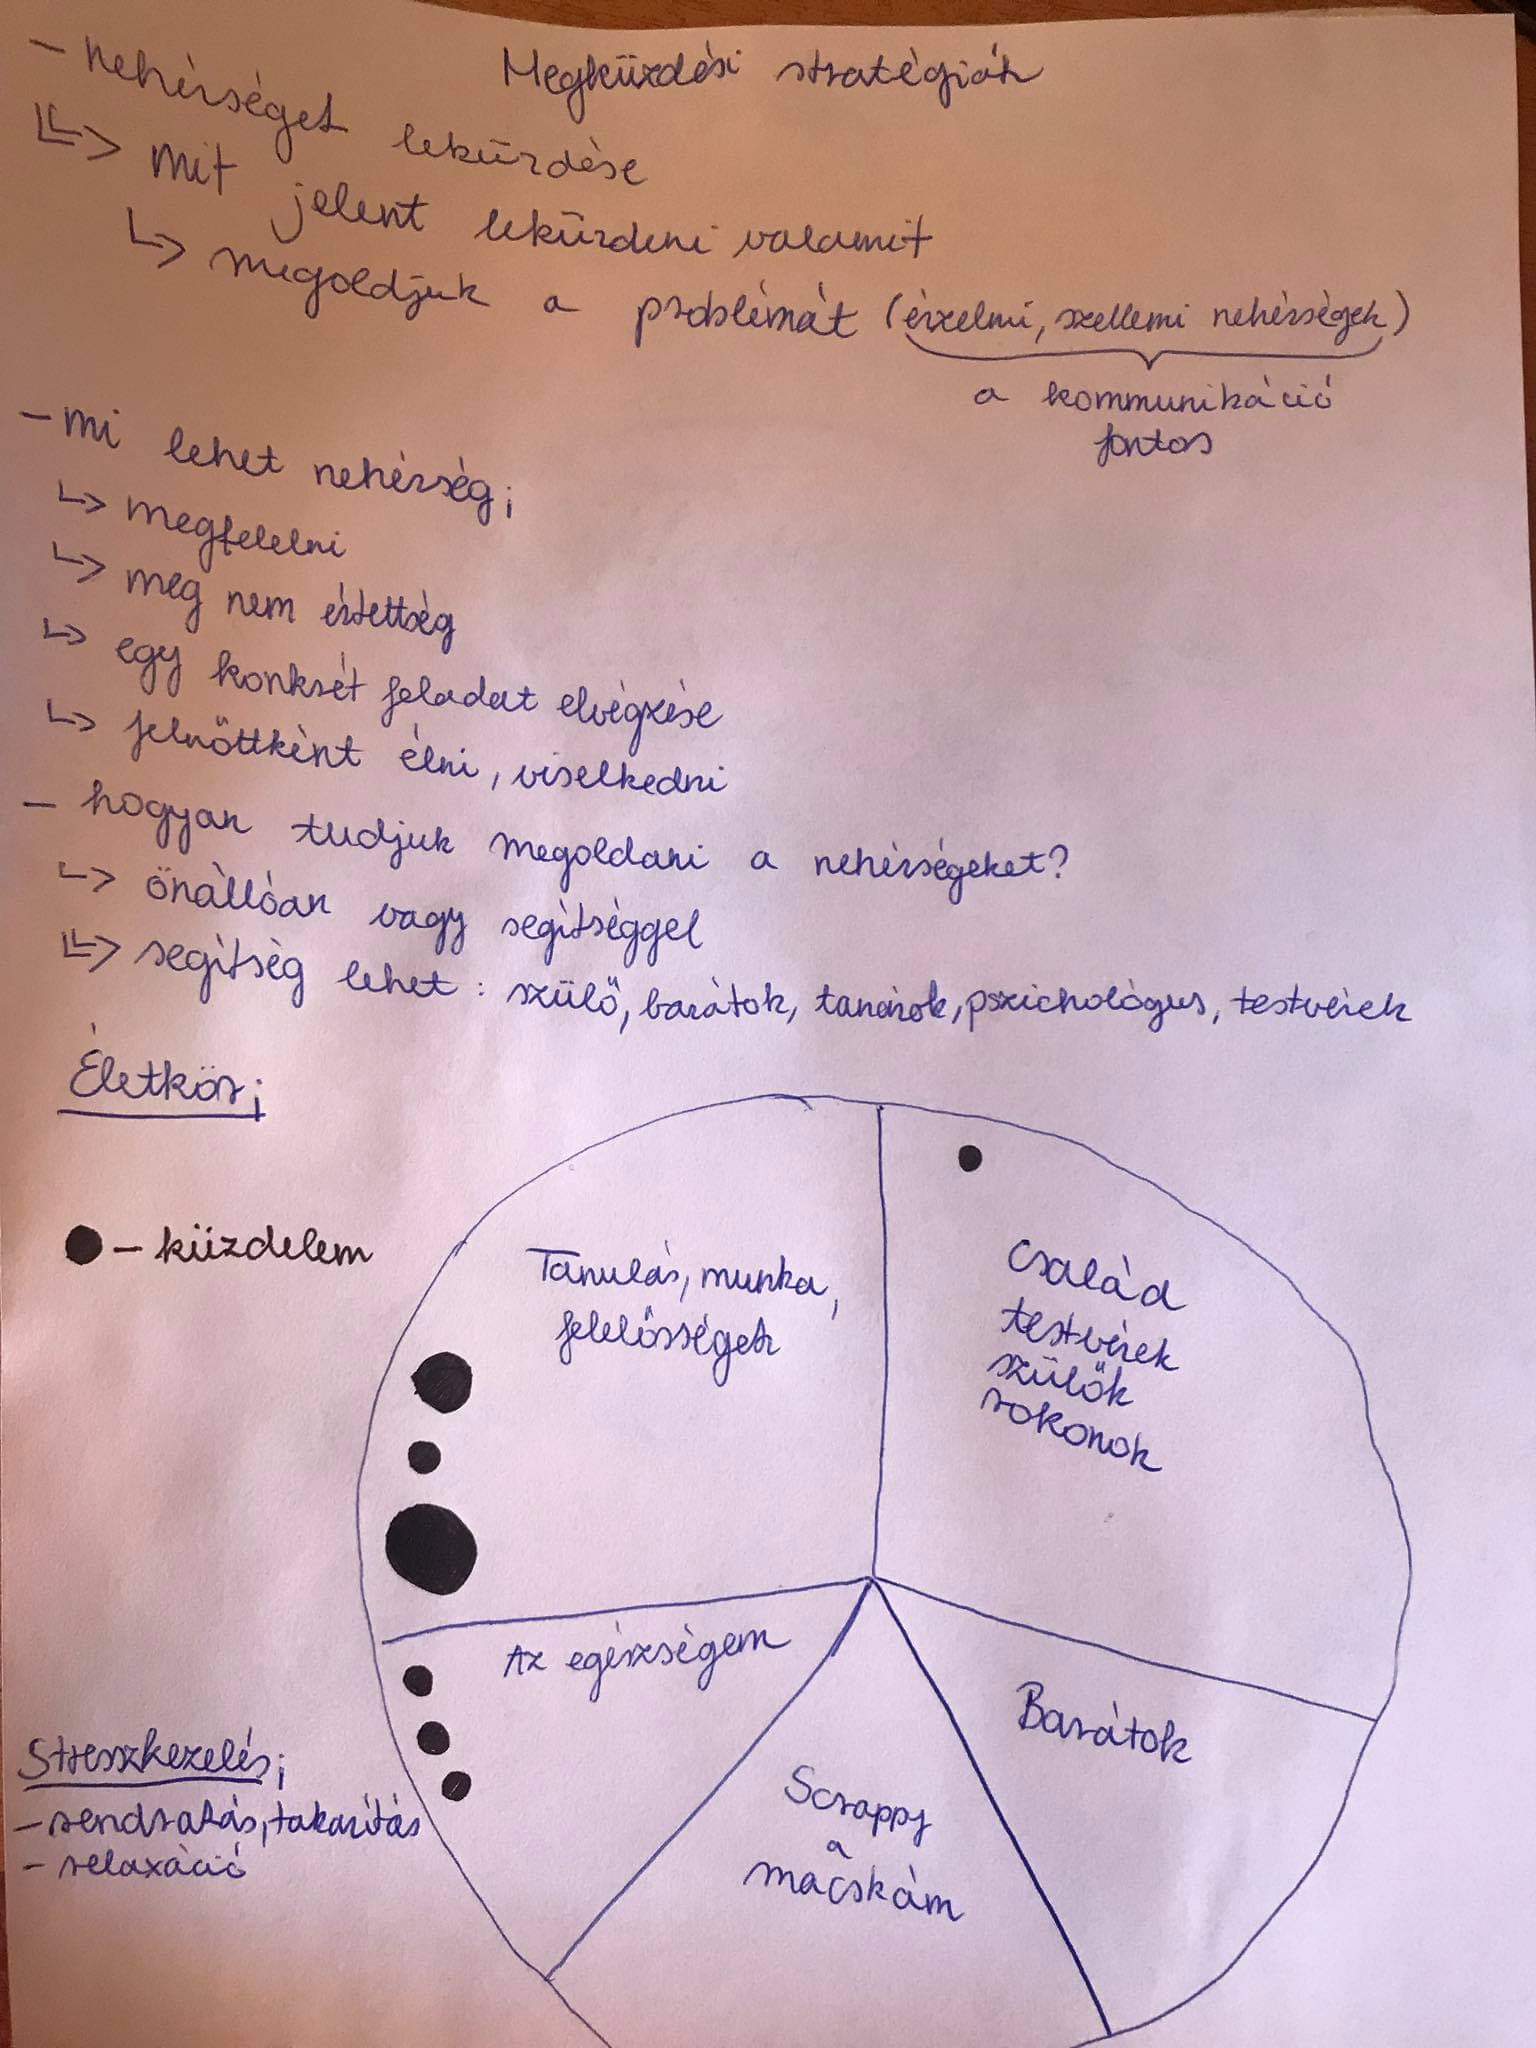 Megküzdési stratégiák
- nehérséget leküzdése
↳> mit jelent leküzdeni valamit
↳ megoldjuk a problémát (érzelmi, szellemi nehérségek)
a kommunikáció
fontos
- mi lehet nehérség;
↳ megfelelni
↳ meg nem értettség
↳ egy konkrét feladat elvégzése
↳ felnőttként élni, viselkedni
- hogyan tudjuk megoldani a nehérségeket?
↳ önállóan vagy segítséggel
↳> segítség lehet: szülő, barátok, tanárok, pszichológus, testvérek
Életkör;
● - küzdelem
Tanulás, munka,
felelősségek
Család
testvérek
szülők
rokonok
Az egészségem
Barátok
Scrappy
a
macskám
Stresszkezelés;
- rendrakás, takarítás
- relaxáció